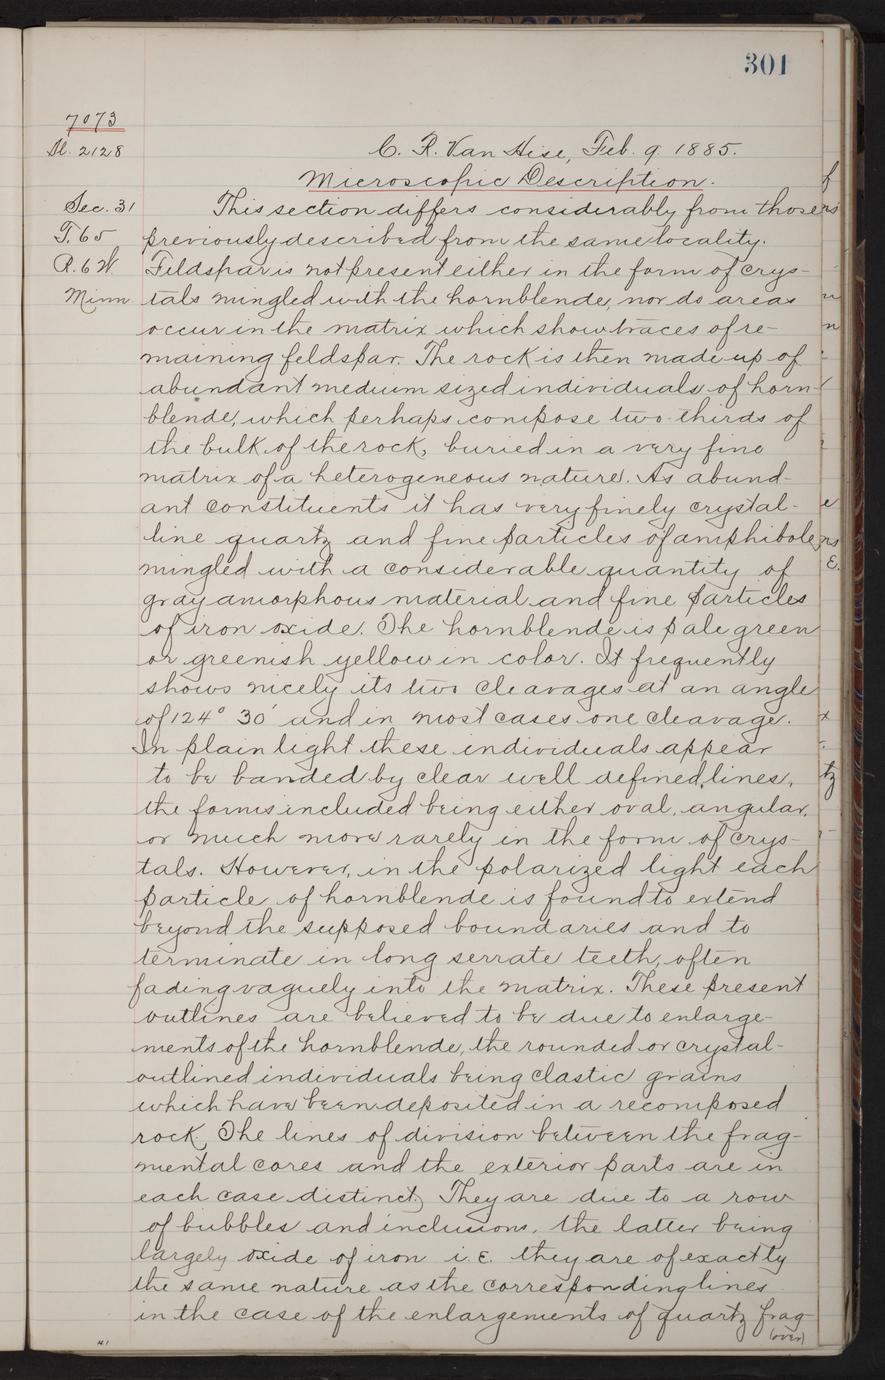 301
7073
Sl. 2128
C. R. Van Hise, Feb. 9. 1885.
Microscopic Description.
Sec. 31
T. 65
R. 6 W.
Minn.
This section differs considerably from those
previously described from the same locality.
Feldspar is not present either in the form of crys-
tals mingled with the hornblende, nor do areas
occur in the matrix which show traces of re-
maining feldspar. The rock is then made up of
abundant medium sized individuals of horn-
blende, which perhaps compose two thirds of
the bulk of the rock, buried in a very fine
matrix of a heterogeneous nature. As abund-
ant constituents it has very finely crystal-
line quartz and fine particles of amphibole,
mingled with a considerable quantity of
gray amorphous material and fine particles
of iron oxide. The hornblende is pale green
or greenish yellow in color. It frequently
shows nicely its two cleavages at an angle
of 124° 30' and in most cases one cleavage.
In plain light these individuals appear
to be banded by clear well defined lines,
the forms included being either oval, angular,
or much more rarely in the form of crys-
tals. However, in the polarized light each
particle of hornblende is found to extend
beyond the supposed boundaries and to
terminate in long serrate teeth, often
fading vaguely into the matrix. These present
outlines are believed to be due to enlarge-
ments of the hornblende, the rounded or crystal-
outlined individuals being clastic grains
which have been deposited in a recomposed
rock. The lines of division between the frag-
mental cores and the exterior parts are in
each case distinct. They are due to a row
of bubbles and inclusions, the latter being
largely oxide of iron i.e. they are of exactly
the same nature as the corresponding lines
in the case of the enlargements of quartz frag-
(over)